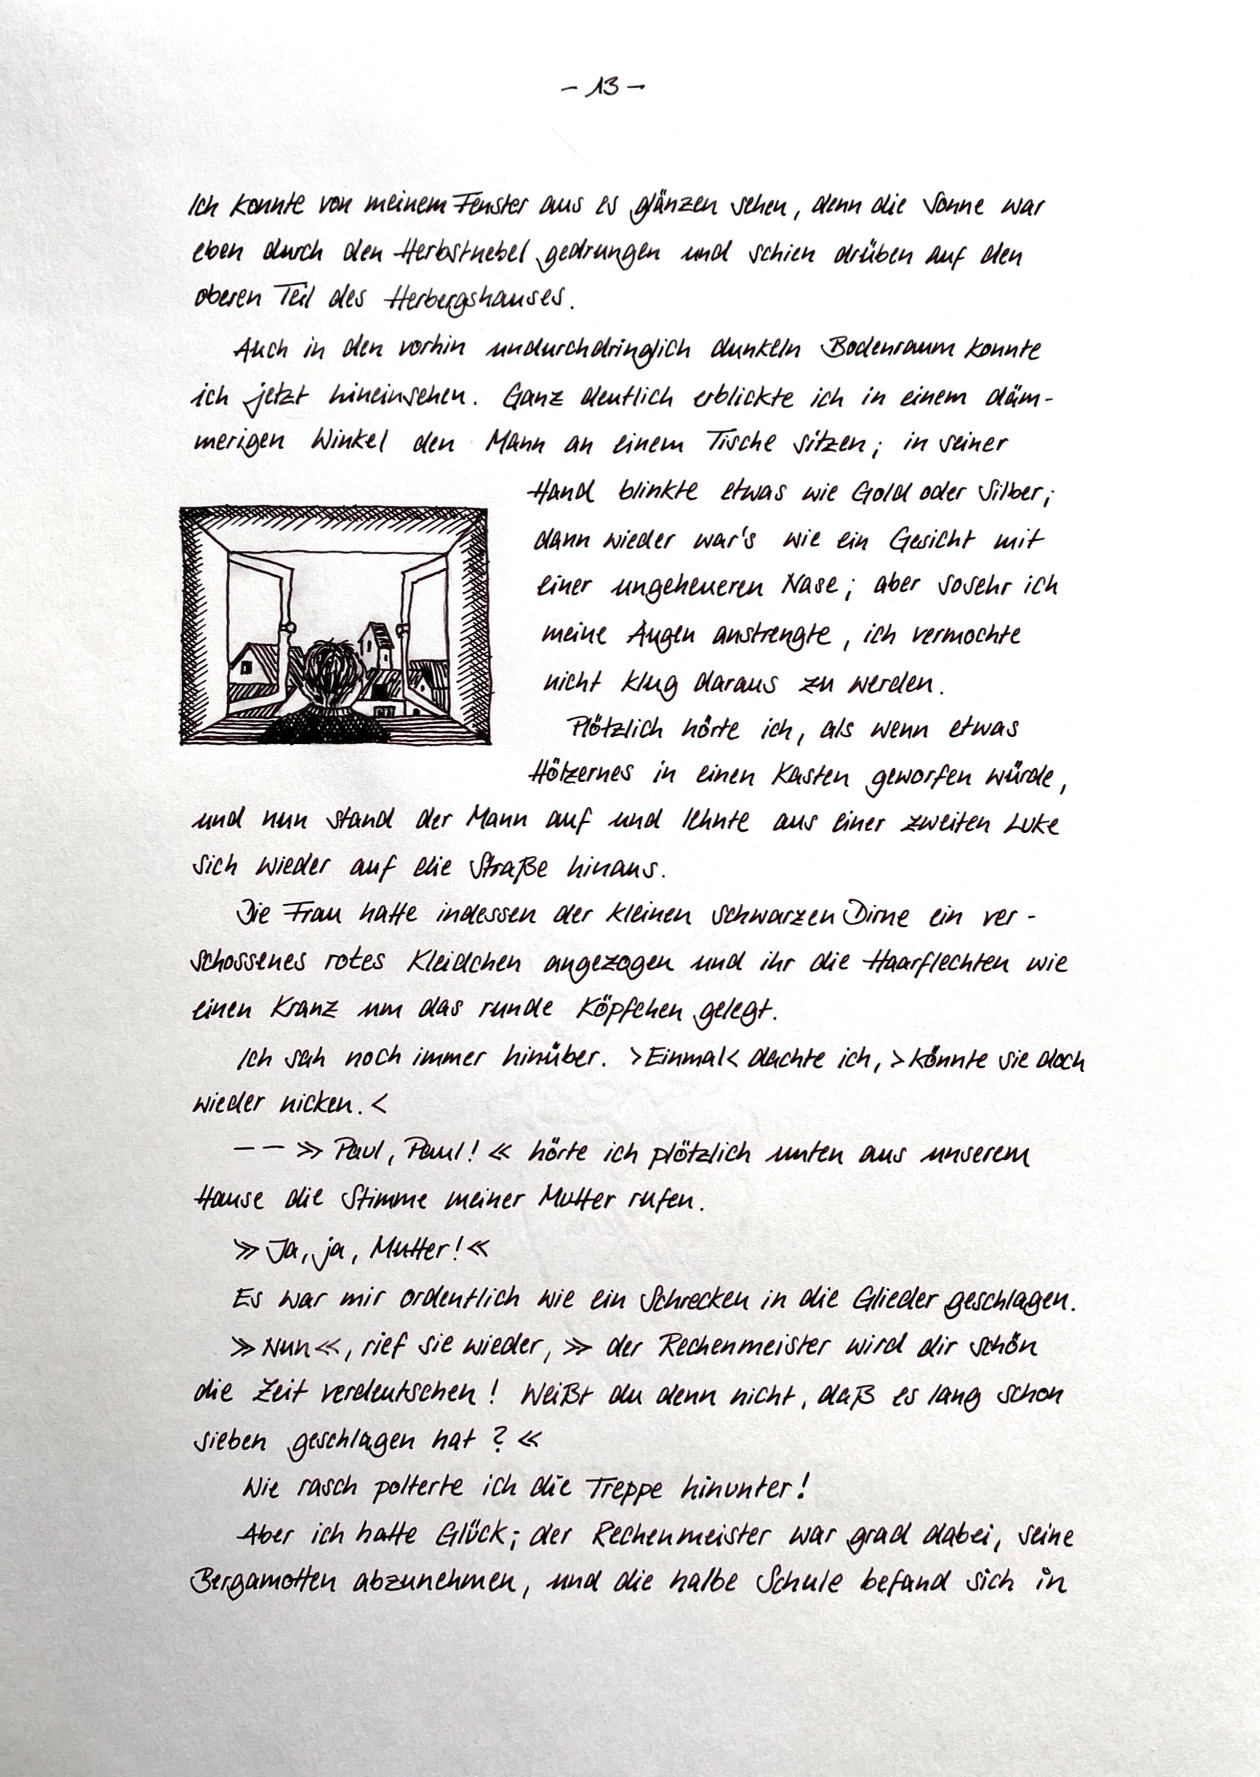 - 13 -
Ich konnte von meinem Fenster aus es glänzen sehen, denn die Sonne war
eben durch den Herbstnebel gedrungen und schien drüben auf den
oberen Teil des Herbergshauses.
Auch in den vorhin undurchdringlich dunkeln Bodenraum konnte
ich jetzt hineinsehen. Ganz deutlich erblickte ich in einem däm-
merigen Winkel den Mann an einem Tische sitzen; in seiner
Hand blinkte etwas wie Gold oder Silber;
dann wieder war's wie ein Gesicht mit
einer ungeheueren Nase; aber sosehr ich
meine Augen anstrengte, ich vermochte
nicht klug daraus zu werden.
Plötzlich hörte ich, als wenn etwas
Hölzernes in einen Kasten geworfen würde,
und nun stand der Mann auf und lehnte aus einer zweiten Luke
sich wieder auf die Straße hinaus.
Die Frau hatte indessen der kleinen schwarzen Dirne ein ver-
schossenes rotes Kleidchen angezogen und ihr die Haarflechten wie
einen Kranz um das runde Köpfchen gelegt.
Ich sah noch immer hinüber. >Einmal< dachte ich, >könnte sie doch
wieder nicken.<
– – » Paul, Paul! « hörte ich plötzlich unten aus unserem
Hause die Stimme meiner Mutter rufen.
» Ja, ja, Mutter! «
Es war mir ordentlich wie ein Schrecken in die Glieder geschlagen.
» Nun «, rief sie wieder, » der Rechenmeister wird dir schön
die Zeit verdeutschen! Weißt du denn nicht, daß es lang schon
sieben geschlagen hat? «
Wie rasch polterte ich die Treppe hinunter!
Aber ich hatte Glück; der Rechenmeister war grad dabei, seine
Bergamotten abzunehmen, und die halbe Schule befand sich in